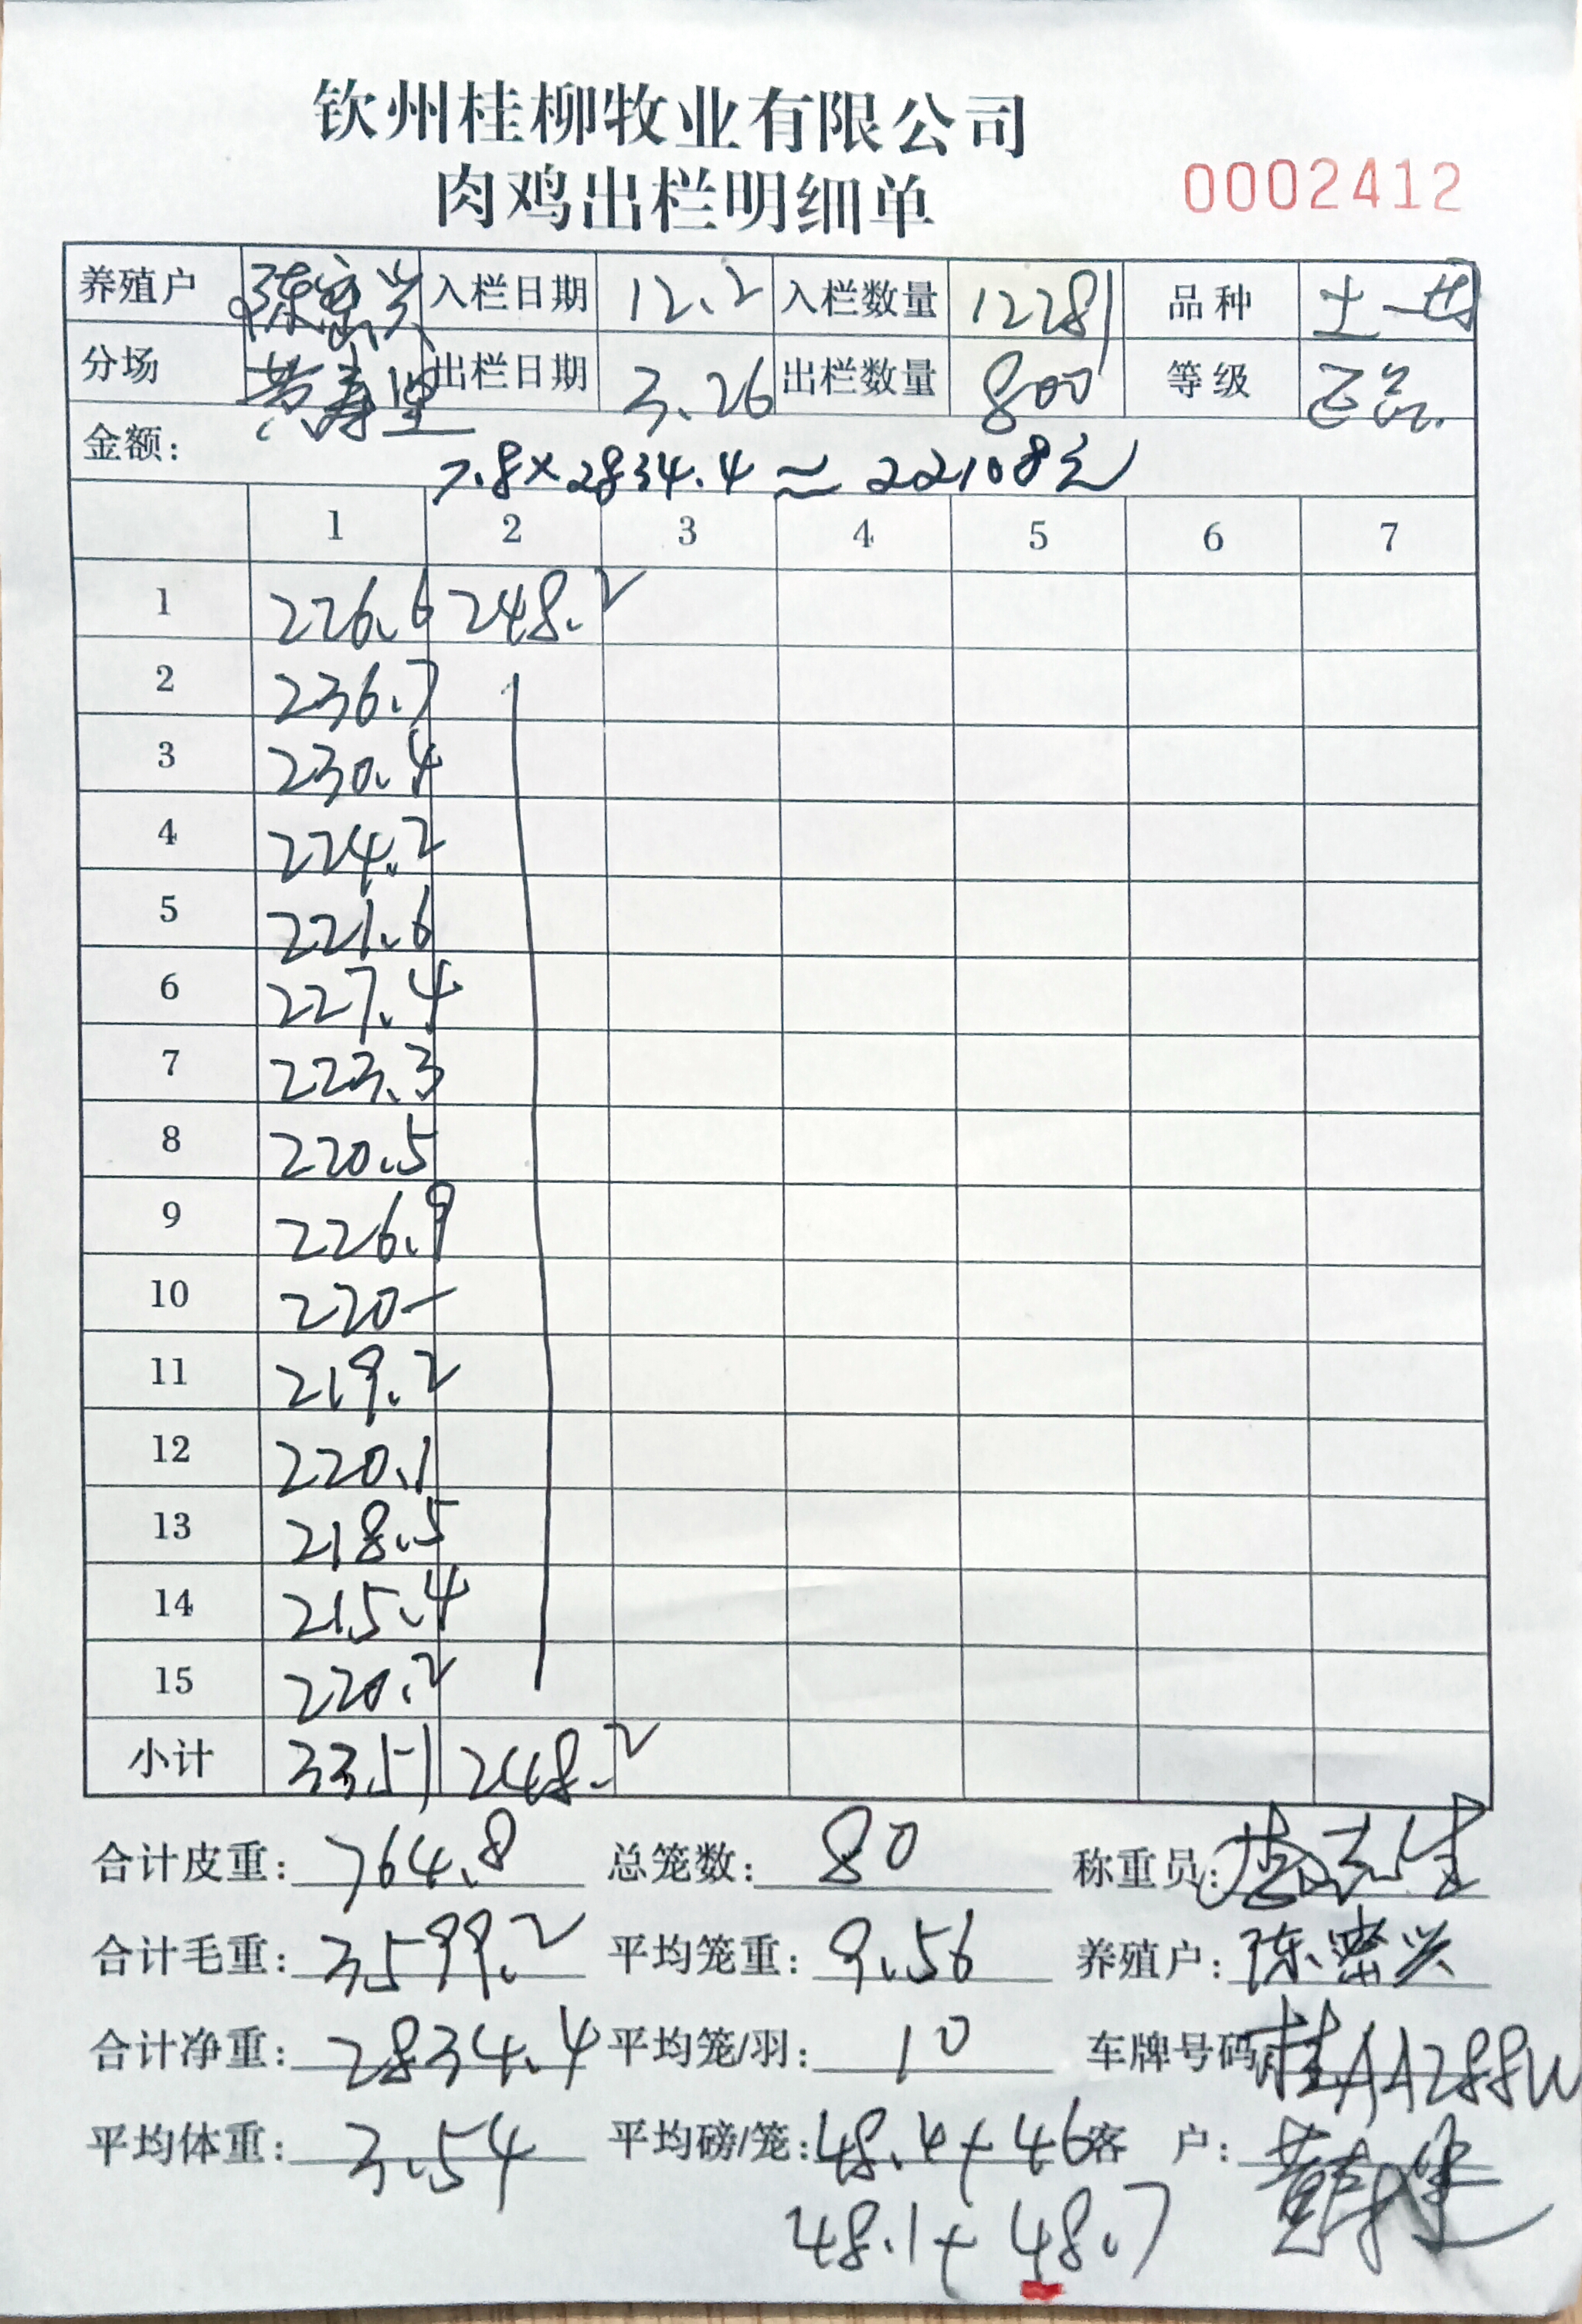 钦州桂柳牧业有限公司
肉鸡出栏明细单
0002412
养殖户 陈密兴 入栏日期 12.2 入栏数量 12281 品种 土一
分场 黄寿堂 出栏日期 3.26 出栏数量 800 等级 正品.
金额: 7.8×2834.4≈22108元
1 2 3 4 5 6 7
1 226.6 248.2
2 236.7
3 230.4
4 224.2
5 221.6
6 227.4
7 223.3
8 220.5
9 226.9
10 220-
11 219.2
12 220.1
13 218.5
14 215.4
15 220.2
小计 3351 248.2
合计皮重: 764.8 总笼数: 80 称重员:
合计毛重: 3599.2 平均笼重: 9.56 养殖户: 陈密兴
合计净重: 2834.4 平均笼/羽: 10 车牌号码: 桂AA288W
平均体重: 3.54 平均磅/笼: 48.4+46 客 户:
48.1+48.7